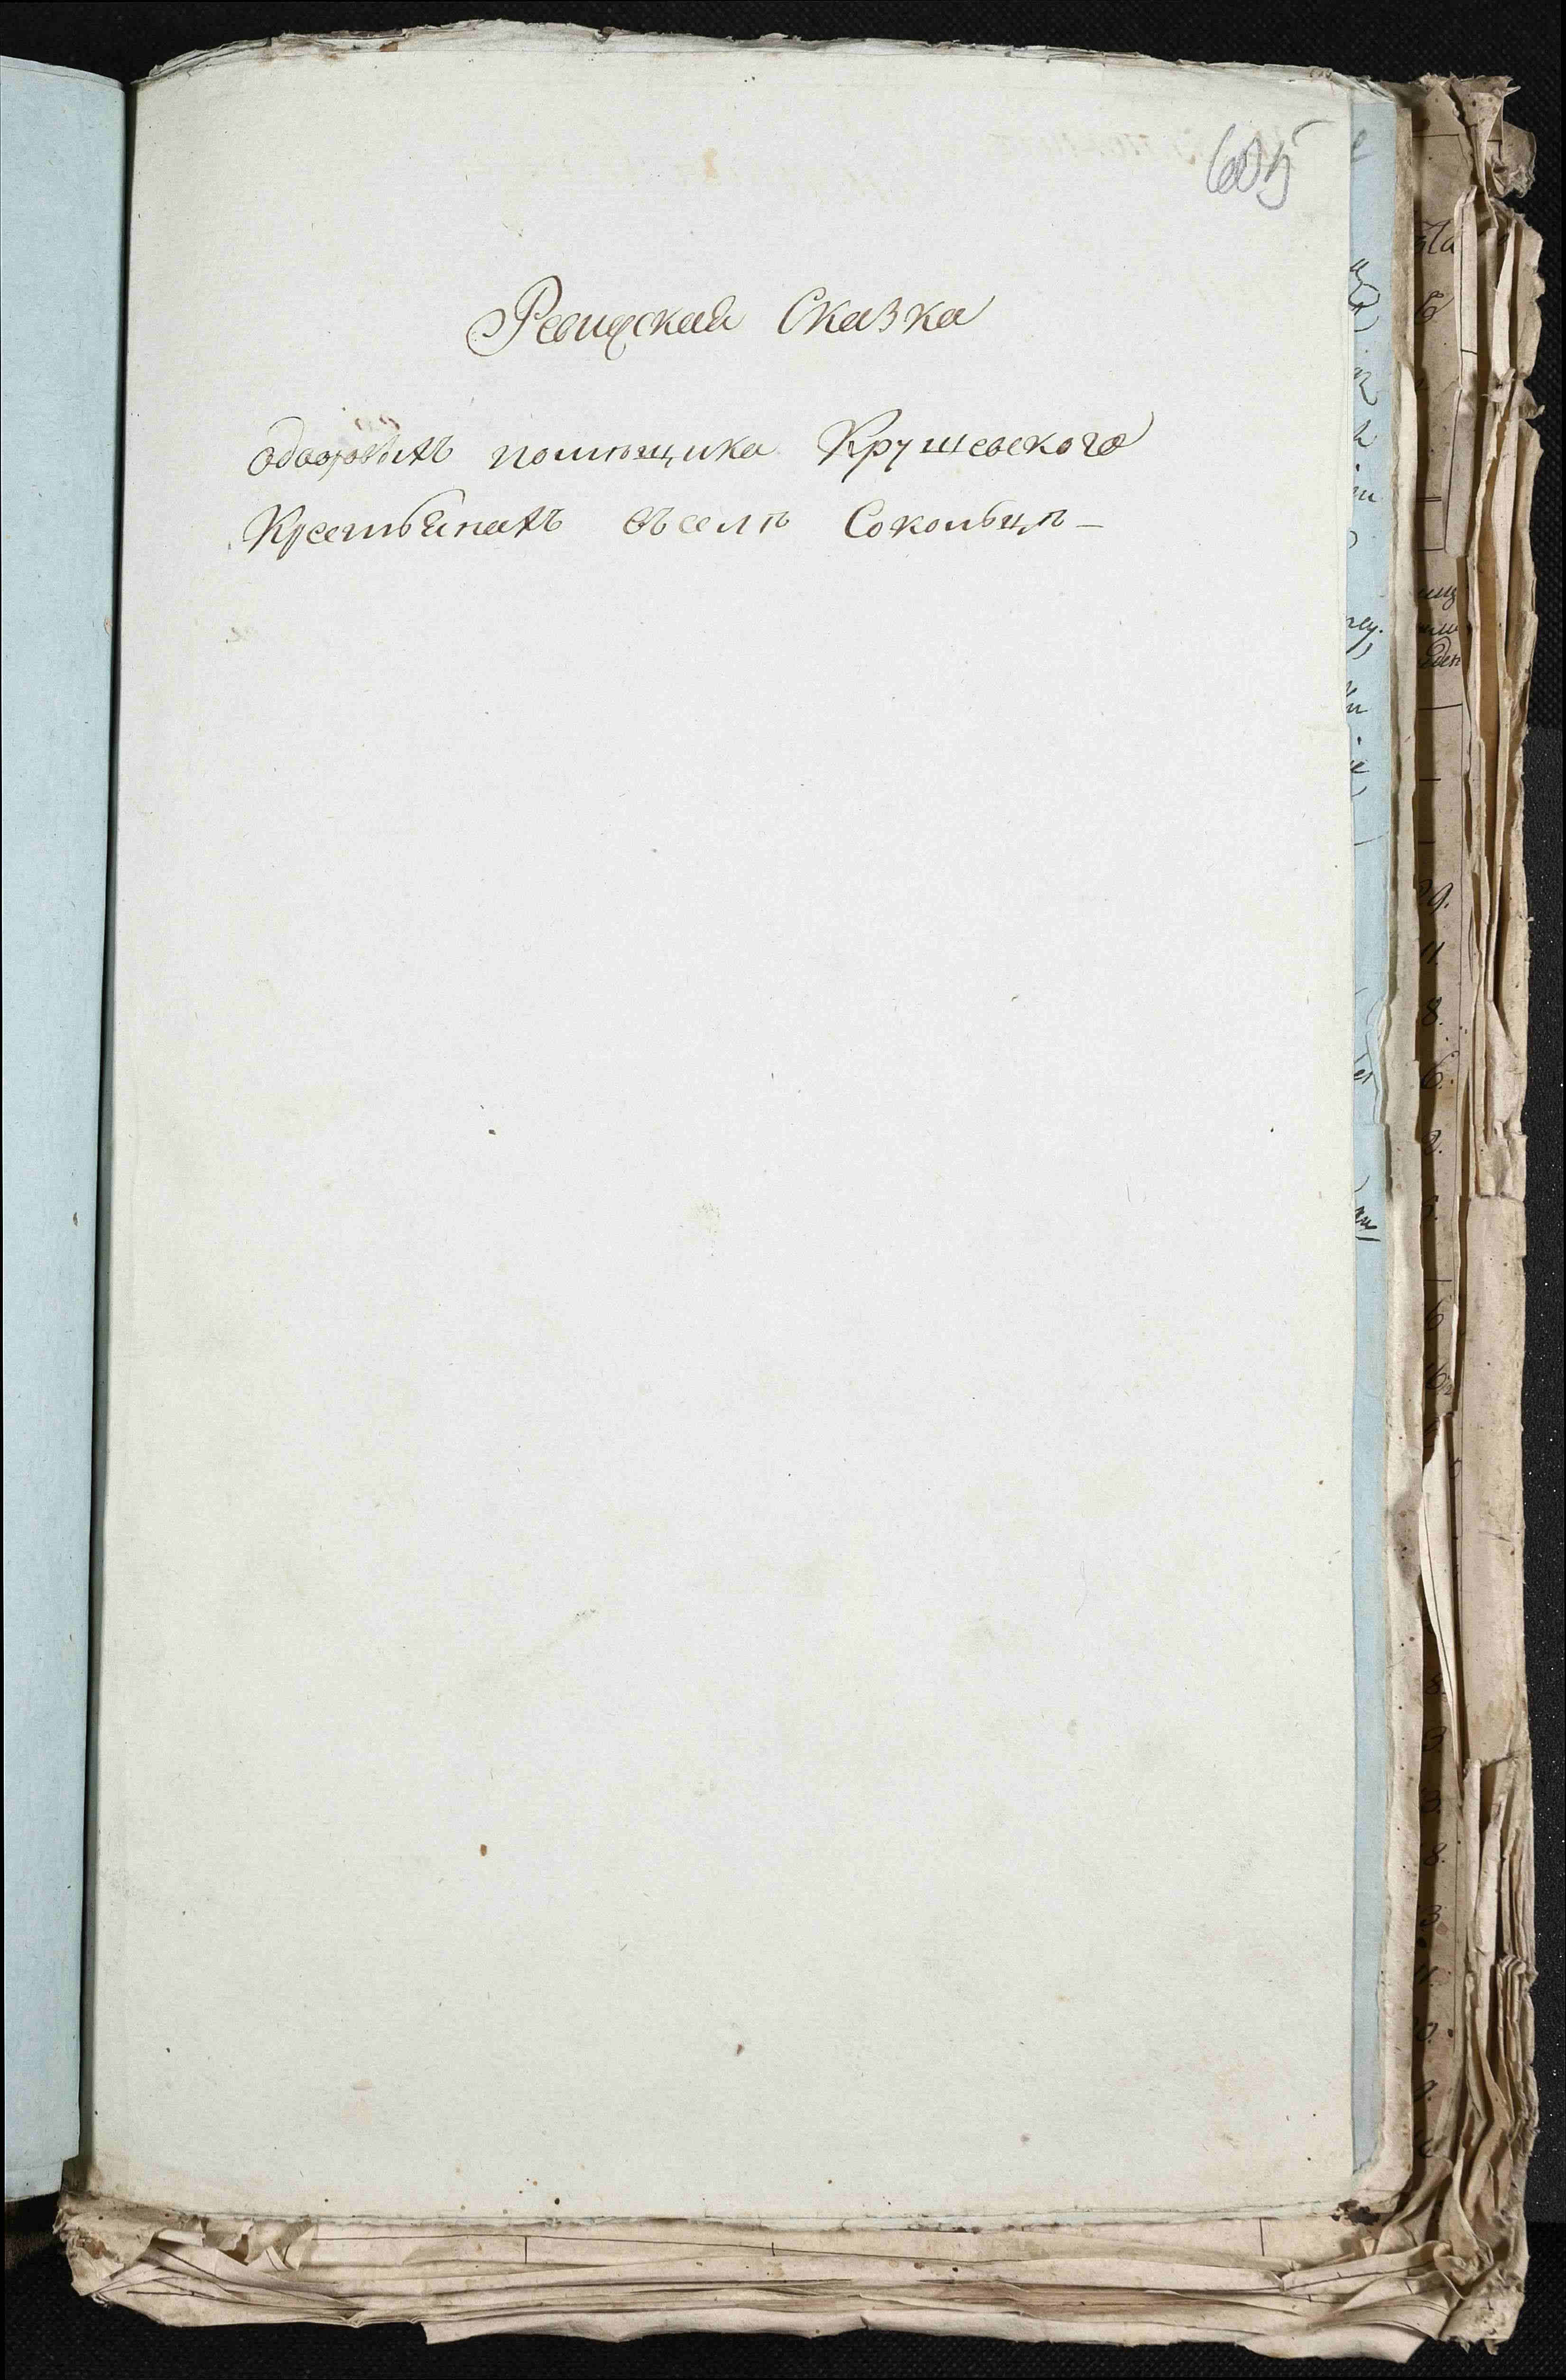 605
Ревизская Сказка
одворовыхъ помѣщика Крушевского
Крестьянахъ въселѣ Сокольцѣ –